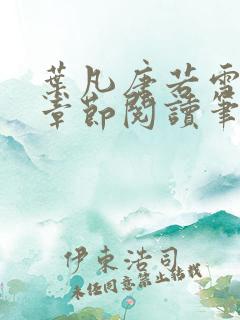 葉凡唐若雪
章節閱讀筆
伊東浩司
未经同意禁止转载